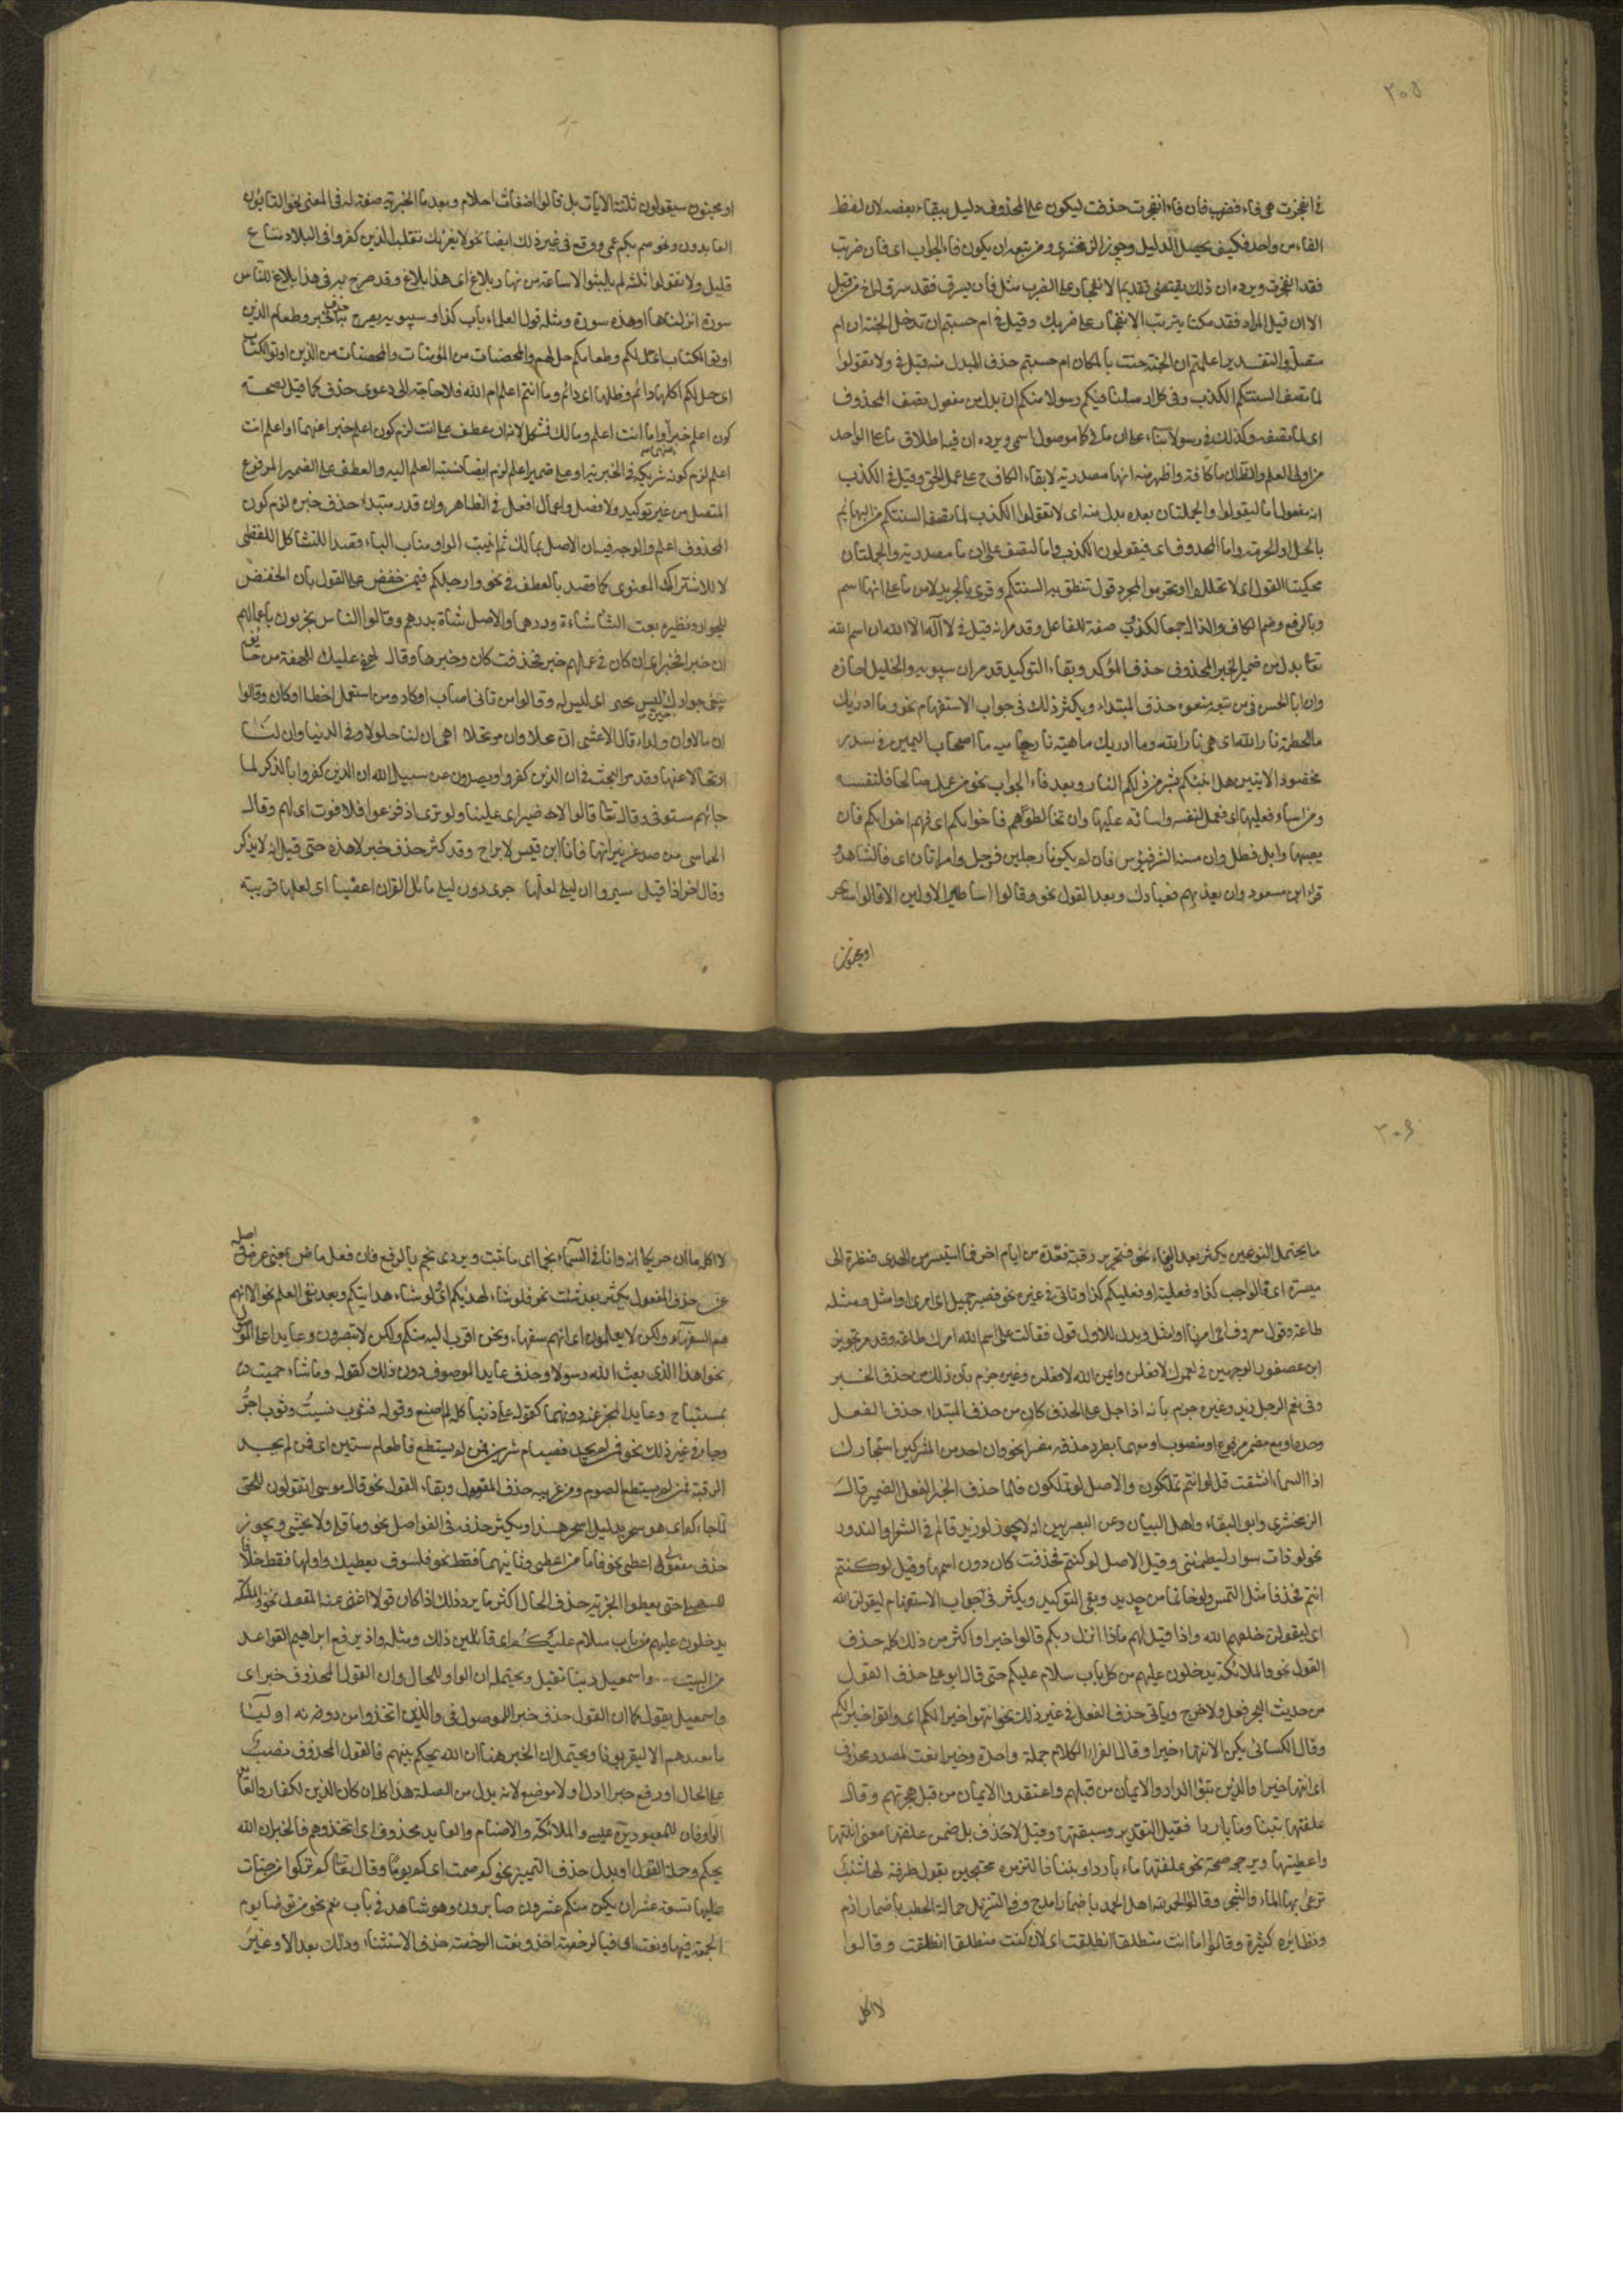 ٢٠٥
فى انفجرت هى فاء فضرب فان فاء انفجرت حذفت ليكون على المحذوف دليل ببقاء بعضه لان لفظ
الفاءين واحد فكيف يحصل الدليل وجوز الزمخشرى ومن تبعه ان يكون فاء الجواب اى فان ضربت
فقد انفجرت ويرده ان ذلك يقتضى تقديم الانفجار على الضرب مثل فان يسرق فقد سرق اخ له من قبل
الا ان قيل المراد فقد حكمنا بترتب الانفجار على ضربك وقيل فى ام حسبتم ان تدخلوا الجنة ان ام
متصلة والتقدير اعلمتم ان الجنة حفت بالمكاره ام حسبتم حذف المبدل منه قيل فى ولا تقولوا
لما تصف السنتكم الكذب وفى كما ارسلنا فيكم رسولا منكم ان بدل من مفعول تصف المحذوف
اى لما تصفه وكذلك فى رسولا بناء على ان ما فى كما موصول اسمى ويرده ان فيه اطلاق ما على الواحد
من اولى العلم والظاهر ان ما كافة واظهر منه انها مصدرية لابقاء الكاف ح على عمل الجر وقيل فى الكذب
انه مفعول اما ليقولوا والجملتان بعده بدل منه اى لا تقولوا الكذب لما تصف السنتكم من البهائم
بالحل او الحرمة واما المحذوف اى فيقولون الكذب واما لتصف على ان ما مصدرية والجملتان
محكيتا القول اى لا تحللوا او تحرموا لمجرد قول تنطق به السنتكم وقرى بالجر بدلا من ما على انها اسم
وبالرفع وضم الكاف والذال جمعا لكذوب صفة للفاعل وقد مر انه قيل فى لا اله الا الله ان اسم الله
تعا بدل من ضمير الخبر المحذوف حذف المؤكد وبقاء التوكيد قد مر ان سيبويه والخليل اجازه
وان ابا الحسن ومن تبعه منعوه حذف المبتداء ويكثر ذلك فى جواب الاستفهام نحو وما ادريك
ما الحطمة نار الله اى هى نار الله وما ادريك ماهيه نار حامية ما اصحاب اليمين فى سدر
مخضود الايتين هل انبئكم بشر من ذلكم النار وبعد فاء الجواب نحو من عمل صالحا فلنفسه
ومن اساء فعليها اى فعمله لنفسه واساءته عليها وان تخالطوهم فاخوانكم اى فهم اخوانكم فان
يصبها وابل فطل وان مسه الشر فيؤس فان لم يكونا رجلين فرجل وامراتان اى فالشاهد و
قرا ابن مسعود وان تعذبهم فعبادك وبعد القول نحو وقالوا اساطير الاولين الا قالوا ساحر
او مجنون
او مجنون سيقولون ثلثة الايات بل قالوا اضغاث احلام وبعد ما الخبر تيه صفة له فى المعنى نحو التائبون
العابدون ونحو صم بكم عمى ووقع فى غير ذلك ايضا نحو لا يغرنك تقلب الذين كفروا فى البلاد متاع
قليل ولا تقولوا ثلثة لم يلبثوا الا ساعة من نهار بلاغ اى هذا بلاغ وقد صرح به فى هذا بلاغ للناس
سورة انزلناها او هذه سورة ومثله قول العلماء باب كذا وسيبويه يصرح به حذف الخبر وطعام الذين
اوتوا الكتاب حل لكم وطعامكم حل لهم والمحصنات من المؤمنات والمحصنات من الذين اوتوا الكتاب
اى حل لكم اكلها دائم وظلها اى دائم وما انتم اعلم ام الله فلا حاجة الى دعوى حذف كما قيل لصحة
كون اعلم خبرا واما انت اعلم ومالك فمشكل لانه ان عطف على انت لزم كون اعلم خبرا عنهما او اعلم انت
اعلم لزم كونه شريكه فى الخبرية او على ضمير اعلم لزم ايضا نسبة العلم اليه والعطف على الضمير المرفوع
المتصل من غير توكيد ولا فصل واعمال افعل فى الظاهر وان قدر مبتداء حذف خبره لزم كون
المحذوف اعلم والوجه فيه ان الاصل بمالك ثم انيبت الواو مناب الباء قصدا للتشاكل اللفظى
لا للاشتراك المعنوى كما قصد بالعطف فى نحو وارجلكم فيمن خفض على القول بان الخفض
للجوار ونظيره بعت الشاء شاة ودرهما والاصل شاة بدرهم وقالوا الناس مجزيون باعمالهم
ان خيرا فخير اى ان كان فى عملهم خير فحذفت كان وخبرها وقال لهفى عليك للهفة من خائف
يبغى جوارك حين ليس مجير اى ليس له وقالوا من تانى اصاب او كاد ومن استعجل اخطا او كاد وقالوا
ان مالا وان ولدا وقال الاعشى ان محلا وان مرتحلا اى ان لنا حلولا فى الدنيا وان لنا
ارتحالا عنها وقد مر البحث فى ان الذين كفروا ويصدون عن سبيل الله ان الذين كفروا بالذكر لما
جائهم مستوفى وقال تعا قالوا لا ضير اى علينا ولو ترى اذ فزعوا فلا فوت اى لهم وقال
الحماسى من صد عن نيرانها فانا ابن قيس لا براح وقد كثر حذف خبر لا هذه حتى قيل انه لا يذكر
وقال اخر اذا قيل سيروا ان ليلى لعلها جرى دون ليلى مائل القرن اعضب اى لعلها قريبة
٢٠٦
ما يحتمل النوعين يكثر بعد الفاء نحو فتحرير رقبة فعدة من ايام اخر فما استيسر من الهدى فنظرة الى
ميسرة اى فالواجب كذا او فعليه او فعليكم كذا وتاتى فى غيره نحو فصبر جميل اى امرى او امثل ومثله
طاعة وقول معروف اى امرنا او امثل ويدل للاول قول فقالت على اسم الله امرك طاعة وقد مر تجويز
ابن عصفور الوجهين فى لعمرك لافعلن وايمن الله لافعلن وغيره جزم بان ذلك من حذف الخبر
وفى نعم الرجل زيد وغيره جزم بانه اذا حمل على الحذف كان من حذف المبتداء حذف الفعل
وحده او مع مضمر مرفوع او منصوب او معهما يطرد حذفه مفسرا نحو وان احد من المشركين استجارك
اذا السماء انشقت قل لو انتم تملكون والاصل لو تملكون فلما حذف الفعل انفصل الضمير قاله
الزمخشرى وابو البقاء واهل البيان وعن البصريين انه لا يجوز لو زيد قام الا فى الشعر او الندور
نحو لو ذات سوار لطمتنى وقيل الاصل لو كنتم فحذفت كان دون اسمها وقيل لو كنتم
انتم فحذفا مثل التمس ولو خاتما من حديد وبقى التوكيد ويكثر فى جواب الاستفهام ليقولن الله
اى ليقولن خلقهم الله واذا قيل لهم ماذا انزل ربكم قالوا خيرا واكثر من ذلك كله حذف
القول نحو والملائكة يدخلون عليهم من كل باب سلام عليكم حتى قال ابو على حذف القول
من حديث البحر فعل ولا حرج وياتى حذف الفعل فى غير ذلك نحو انتهوا خيرا لكم اى واتوا خيرا لكم
وقال الكسائى يكن الانتهاء خيرا وقال الفراء الكلام جملة واحدة وخيرا نعت لمصدر محذوف
اى انتهاء خيرا والذين تبوؤا الدار والايمان من قبلهم واعتقدوا الايمان من قبل هجرتهم وقال
علفتها تبنا وماء باردا فقيل التقدير وسقيتها وقيل لا حذف بل ضمن علفتها معنى انلتها
واعطيتها ويرجح صحة نحو علفتها ماء باردا وتبنا فالتزمه محتجين بقول طرفة لها سبب
ترعى به الماء والشجر وقالوا الحمد لله اهل الحمد باضمار امدح وفى التنزيل حمالة الحطب باضمار اذم
ونظايره كثيرة وقالوا اما انت منطلقا انطلقت اى لان كنت منطلقا انطلقت وقالوا
لا اكل
لا اكله ما ان حرا مكانه وانا فى السماء نجما اى ما ثبت ويروى نجم بالرفع فان فعل ماض بمعنى عرض اصله
عن حذف المفعول يكثر بعد شئت نحو فلو شاء لهديكم اى لو شاء هدايتكم وبعد نفى العلم نحو الا انهم
هم السفهاء ولكن لا يعلمون اى انهم سفهاء ونحن اقرب اليه منكم ولكن لا تبصرون وعايدا على الموصول
نحو اهذا الذى بعث الله رسولا وحذف عايد الموصوف دون ذلك كقوله وما شىء حميت
بمستباح وعايد المخبر عنه دونهما كقوله على ذنبا كله لم اصنع وقوله فثوب نسيت وثوب اجر
وجاء فى غير ذلك نحو فمن لم يجد فصيام شهرين فمن لم يستطع فاطعام ستين اى فمن لم يجد
الرقبة فمن لم يستطع الصوم ومن غريبه حذف المقول وبقاء القول نحو قال موسى اتقولون للحق
لما جاءكم اى هو سحر بدليل اسحر هذا ويكثر حذفه فى الفواصل نحو وما قلى ولا تخشى ويجوز
حذف مفعولى اعطى نحو فاما من اعطى وثانيهما فقط نحو فلسوف يعطيك واولهما فقط خلافا
للسهيلى حتى يعطوا الجزية حذف الحال اكثر ما يرد ذلك اذا كان قولا اغنى عنه المقول نحو والملئكة
يدخلون عليهم من كل باب سلام عليكم اى قائلين ذلك ومثله واذ يرفع ابراهيم القواعد
من البيت واسمعيل ربنا تقبل ويحتمل ان الواو للحال وان القول المحذوف خبر اى
واسمعيل يقول كما ان القول حذف خبرا للموصول فى والذين اتخذوا من دونه اوليا
ما نعبدهم الا ليقربونا ويحتمل ان الخبر هنا ان الله يحكم بينهم فالقول المحذوف نصب
على الحال او رفع خبرا اول او لا موضع لانه بدل من الصلة هذا كله ان كان الذين للكفار والعايد
الواو فان للمعبودين عيسى والملائكة والاصنام والعايد محذوف اى اتخذوهم فالخبر ان الله
يحكم وجملة القول او بدل حذف التمييز نحو كم صمت اى كم يوما وقال تعا كم تركوا من جنات
عليها تسعة عشر ان يكن منكم عشرون صابرون وهو شاهد فى باب نعم نحو من توضا يوم
الجمعة فبها ونعمت اى فبالرخصة اخذ ونعمت الرخصة حذف الاستثناء وذلك بعد الا وغير